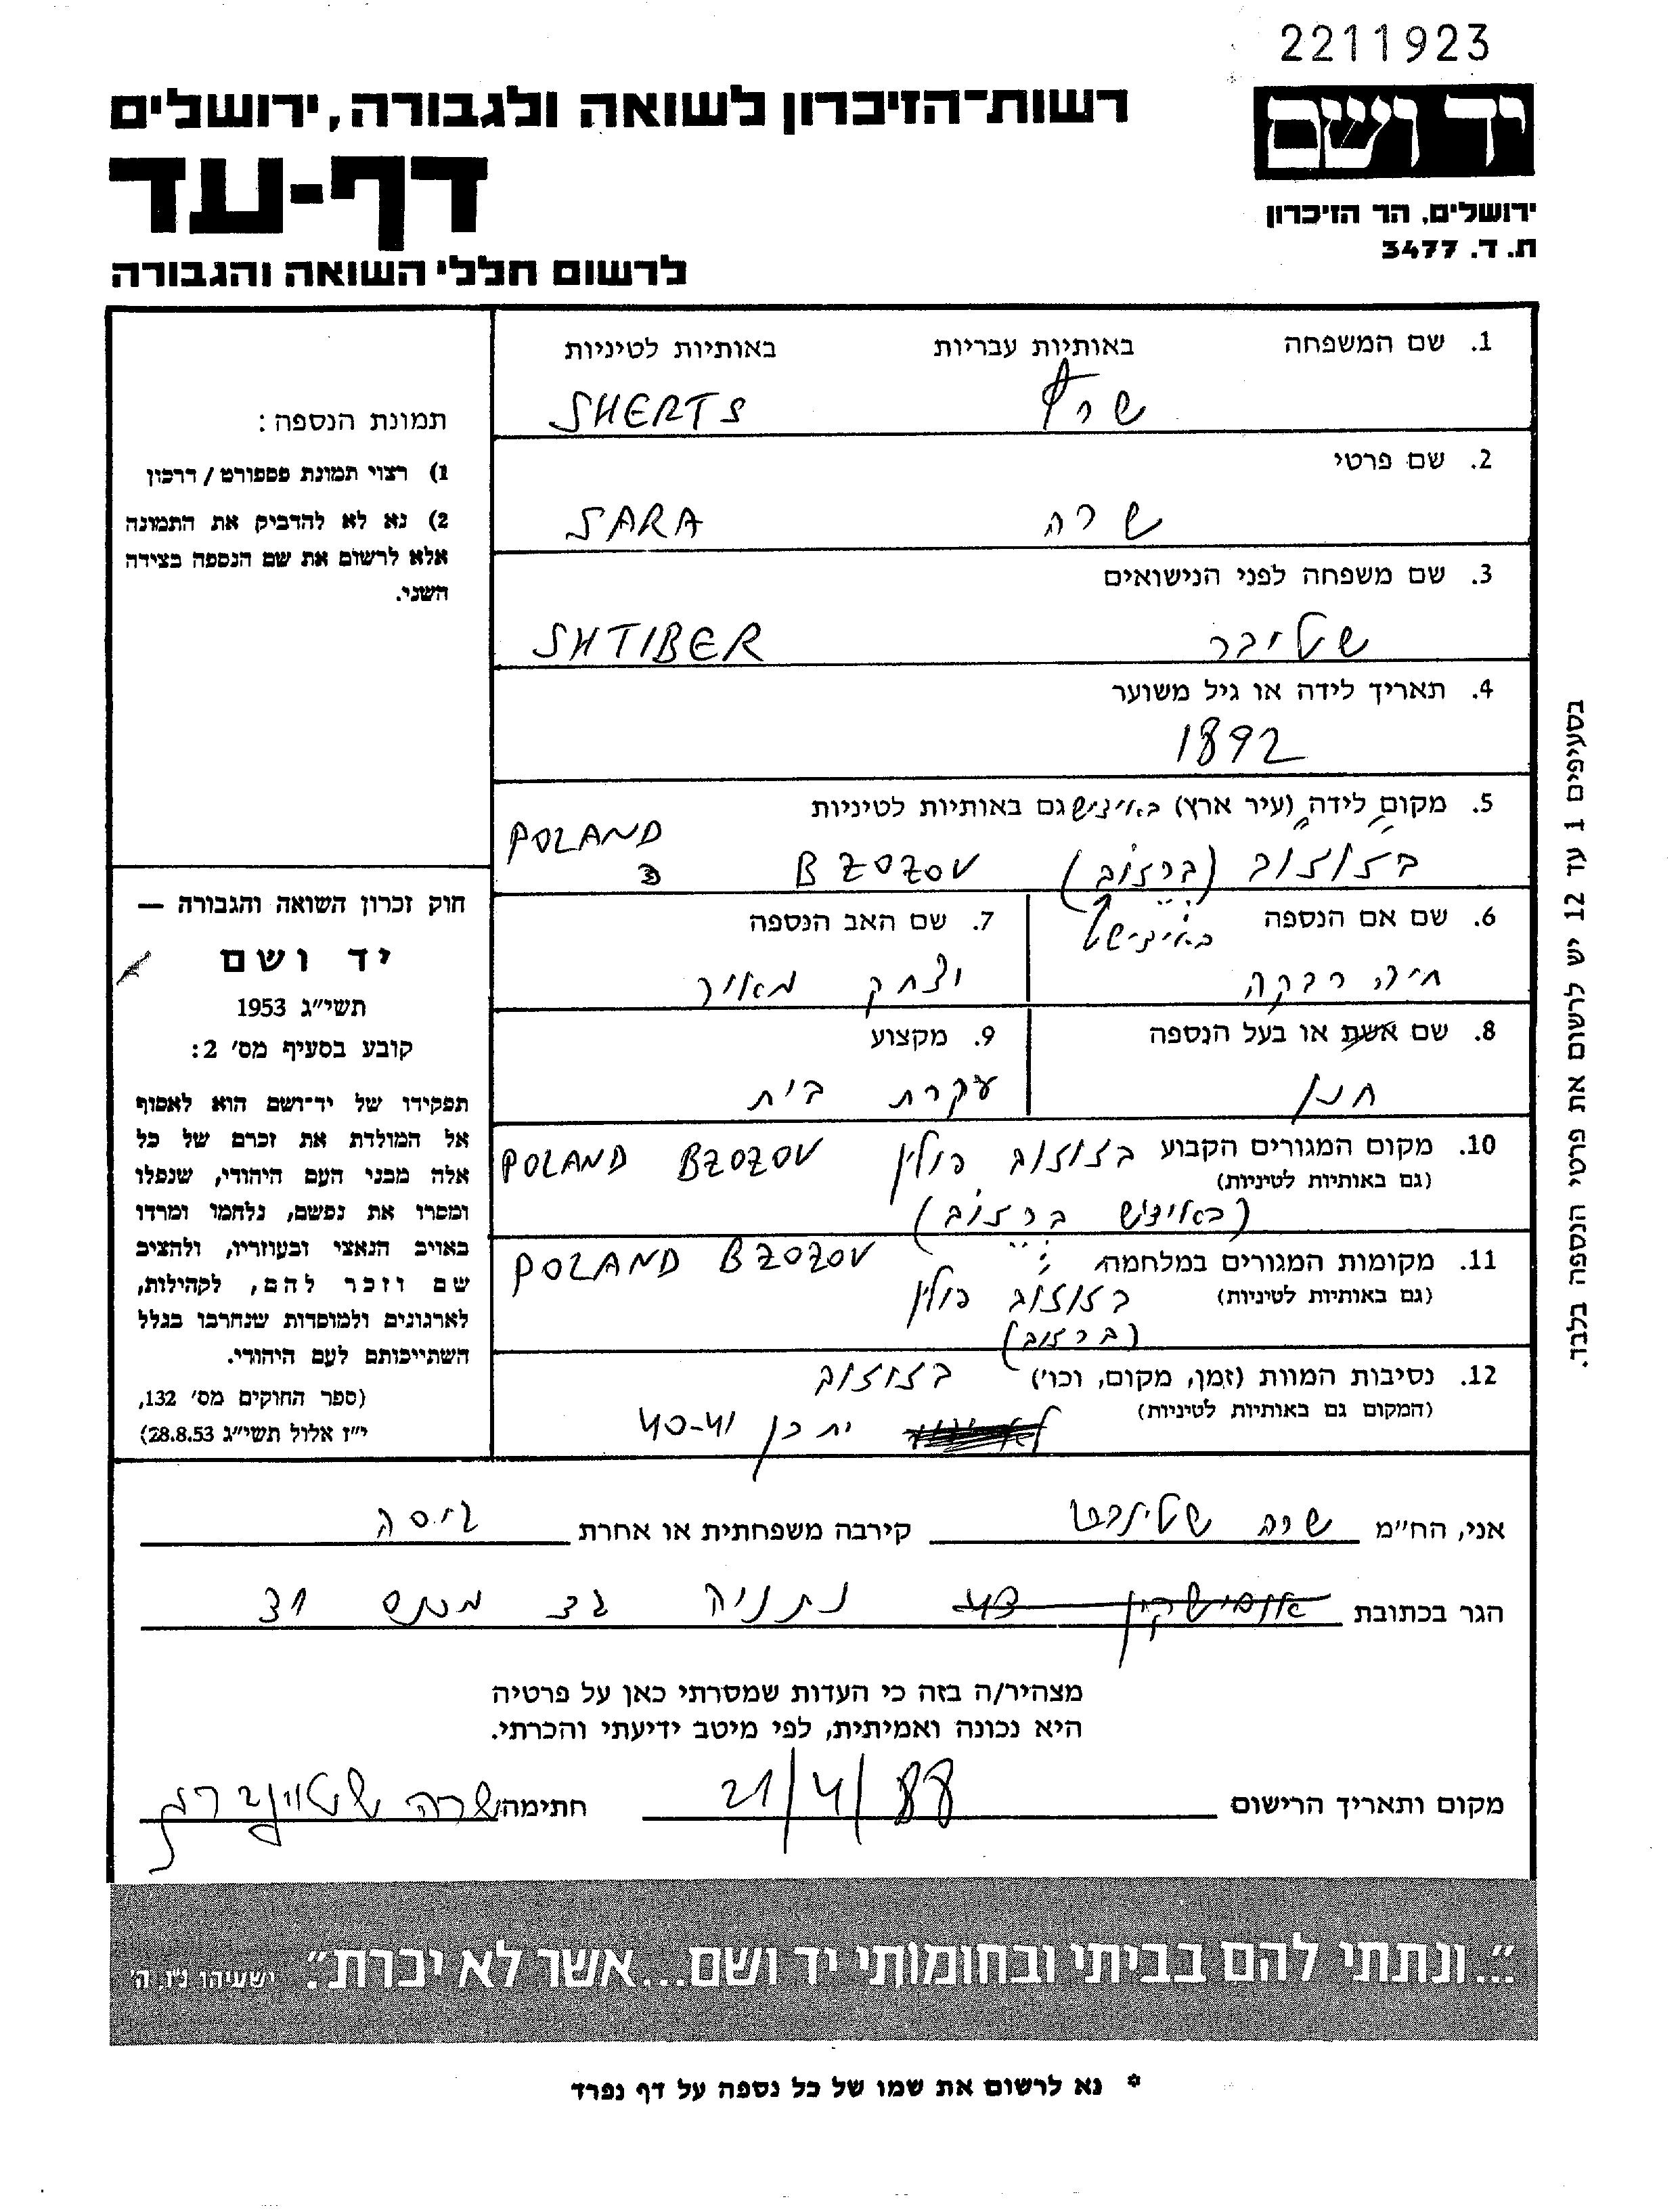 2211923
יד ושם
רשות־הזיכרון לשואה ולגבורה, ירושלים
דף-עד
ירושלים, הר הזיכרון
ת. ד. 3477
לרשום חללי השואה והגבורה
1. שם המשפחה באותיות עבריות באותיות לטיניות
שרץ SHERTS
2. שם פרטי
שרה SARA
3. שם משפחה לפני הנישואים
שטיבר SHTIBER
4. תאריך לידה או גיל משוער
1892
5. מקום לידה (עיר ארץ) באידיש גם באותיות לטיניות
POLAND
בזוזוב (ברזוב) BZOZOV
באידיש
6. שם אם הנספה
חיה רבקה
7. שם האב הנספה
יצחק מאיר
8. שם אשת או בעל הנספה
חנן
9. מקצוע
עקרת בית
10. מקום המגורים הקבוע בזוזוב פולין BZOZOV POLAND
(גם באותיות לטיניות)
(באידיש ברזוב)
11. מקומות המגורים במלחמה BZOZOV POLAND
(גם באותיות לטיניות) בזוזוב פולין
(ברזוב)
12. נסיבות המוות (זמן, מקום, וכו') בזוזוב
(המקום גם באותיות לטיניות) יתכן 40-41
תמונת הנספה:
1) רצוי תמונת פספורט / דרכון
2) נא לא להדביק את התמונה
אלא לרשום את שם הנספה בצידה
השני.
חוק זכרון השואה והגבורה —
יד ושם
תשי״ג 1953
קובע בסעיף מס' 2:
תפקידו של יד־ושם הוא לאסוף
אל המולדת את זכרם של כל
אלה מבני העם היהודי, שנפלו
ומסרו את נפשם, נלחמו ומרדו
באויב הנאצי ובעוזריו, ולהציב
שם וזכר להם, לקהילות,
לארגונים ולמוסדות שנחרבו בגלל
השתייכותם לעם היהודי.
(ספר החוקים מס' 132,
י״ז אלול תשי״ג 28.8.53)
בסעיפים 1 עד 12 יש לרשום את פרטי הנספה בלבד.
אני, הח״מ שרה שטינברג קירבה משפחתית או אחרת גיסה
הגר בכתובת אוסישקין נתניה
מצהיר/ה בזה כי העדות שמסרתי כאן על פרטיה
היא נכונה ואמיתית, לפי מיטב ידיעתי והכרתי.
מקום ותאריך הרישום 21/4/88 חתימה שרה שטיינברג
״...ונתתי להם בביתי ובחומותי יד ושם...אשר לא יכרת״. ישעיהו נ״ו, ה'
* נא לרשום את שמו של כל נספה על דף נפרד